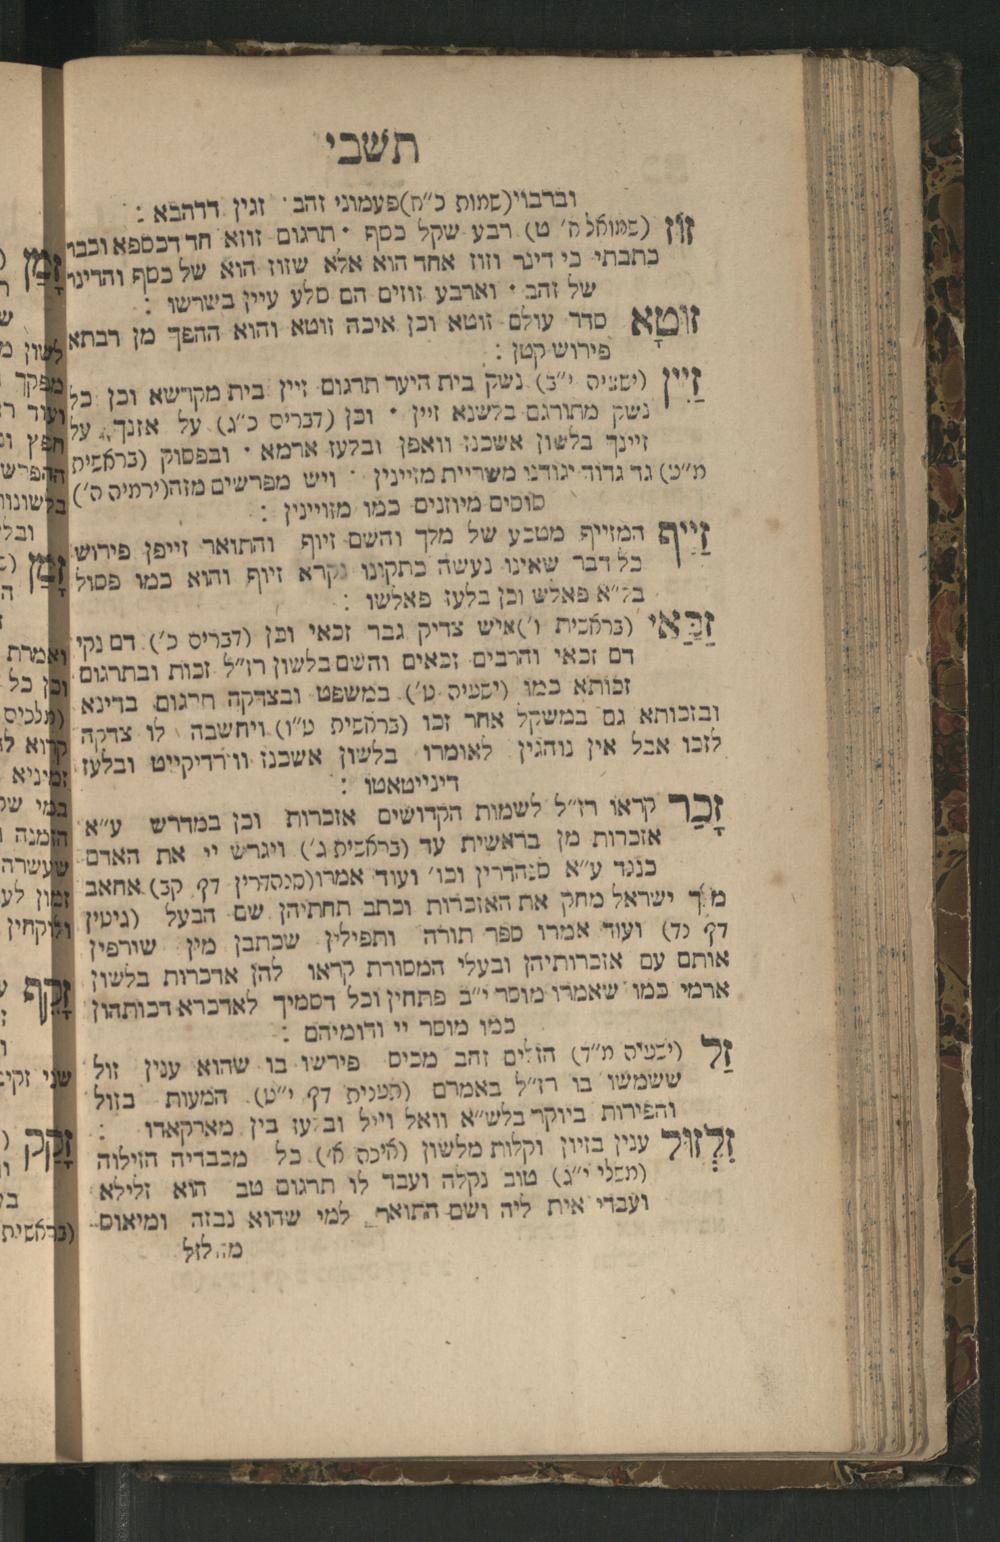 תשבי
וברבוי (שמות כ״ח) פעמוני זהב · זגין דדהבא :
זוז (שמואל ה׳ ט) רבע שקל כסף · תרגום זוזא חד דכספא וכבר
כתבתי כי דינר וזוז אחד הוא אלא שזוז הוא של כסף והדינר
של זהב · וארבע זוזים הם סלע עיין בשרשו :
זוטא סדר עולם זוטא וכן איכה זוטא והוא ההפך מן רבתא
פירוש קטן :
זיין (ישעיה י״ב) נשק בית היער תרגום זיין בית מקדשא וכן כל
נשק מתורגם בלשנא זיין · וכן (דברים כ״ג) על אזנך על
זיינך בלשון אשכנז וואפן ובלעז ארמא · ובפסוק (בראשית
מ״ט) גד גדוד יגודנו משריית מזיינין · ויש מפרשים מזה (ירמיה ה׳)
סוסים מיוזנים כמו מזויינין :
זייף המזייף מטבע של מלך והשם זיוף והתואר זייפן פירוש
כל דבר שאינו נעשה כתקונו נקרא זיוף והוא כמו פסול
בל״א פאלש וכן בלעז פאלשו :
זכאי (בראשית ו׳) איש צדיק גבר זכאי וכן (דברים כ׳) דם נקי
דם זכאי והרבים זכאים והשם בלשון רז״ל זכות ובתרגום
זכותא כמו (ישעיה ט׳) במשפט ובצדקה תרגום בדינא
ובזכותא גם במשקל אחר זכו (בראשית ט״ו) ויחשבה לו צדקה
לזכו אבל אין נוהגין לאומרו בלשון אשכנז ווירדיקייט ובלעז
דינייטאטו :
זכר קראו רז״ל לשמות הקדושים אזכרות וכן במדרש ע״א
אזכרות מן בראשית עד (בראשית ג׳) ויגרש יי את האדם
כנגד ע״א סנהדרין וכו׳ ועוד אמרו (סנהדרין דף קב) אחאב
מלך ישראל מחק את האזכרות וכתב תחתיהן שם הבעל (גיטין
דף נד) ועוד אמרו ספר תורה ותפילין שכתבן מין שורפין
אותם עם אזכרותיהן ובעלי המסורת קראו להן אדכרות בלשון
ארמי כמו שאמרו מוסר י״ב פתחין וכל דסמיך לאדכרא דכותהון
כמו מוסר יי ודומיהם :
זל (ישעיה מ״ד) הזלים זהב מכיס פירשו בו שהוא ענין זול
ששמשו בו רז״ל באמרם (תענית דף י״ט) המעות בזול
והפירות ביוקר בלש״א וואל וייל ובלעז בין מארקאדו :
זלזול ענין בזיון וקלות מלשון (איכה א׳) כל מכבדיה הזילוה
(משלי י״ב) טוב נקלה ועבד לו תרגום טב הוא זלילא
ועבדי אית ליה ושם התואר למי שהוא נבזה ומיאוס
מזלזל